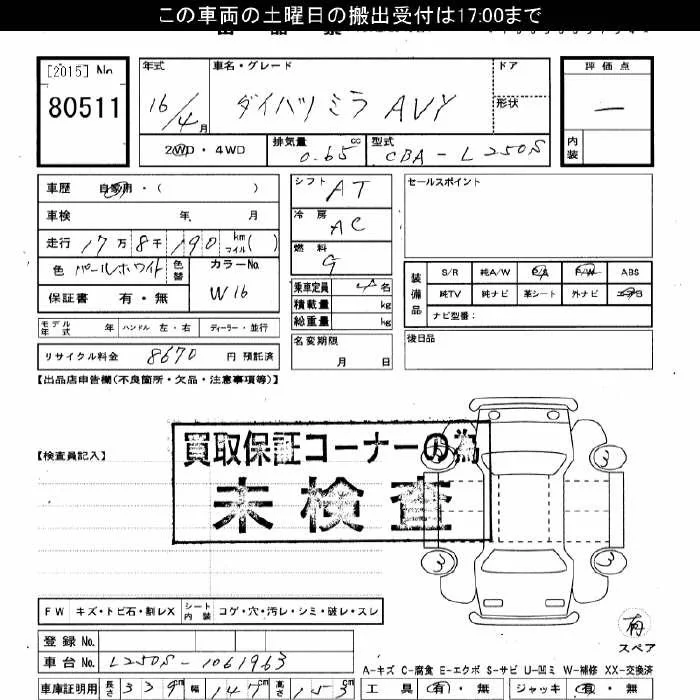 この車両の土曜日の搬出受付は17:00まで
[2015] No.
80511
年式
16/4月
車名・グレード
ダイハツ ミラ AVY
ドア
形状
評価点
—
内装
2WD・4WD
排気量
0.65 cc
型式
CBA-L250S
車歴 自家用・( )
車検 年 月
走行 17万8千190 km マイル( )
色 パールホワイト 色替
カラーNo. W16
保証書 有・無
シフト AT
冷房 AC
燃料 G
乗車定員 4名
積載量 kg
総重量 kg
セールスポイント
装備品
S/R 純A/W P/S P/W ABS
純TV 純ナビ 革シート 外ナビ エアB
ナビ型番:
モデル年式 年 ハンドル 左・右 ディーラー・並行
リサイクル料金 8670 円 預託済
名変期限
月 日
後日品
【出品店申告欄(不良箇所・欠品・注意事項等)】
【検査員記入】
買取保証コーナーの為
未検査
3
3
3
3
FW キズ・トビ石・割レX
シート内装 コゲ・穴・汚レ・シミ・破レ・スレ
登録 No.
車台 No. L250S-1061963
車庫証明用 長さ 339cm 幅 147cm 高さ 153cm
有
スペア
A-キズ C-腐食 E-エクボ S-サビ U-凹ミ W-補修 XX-交換済
工具 有・無 ジャッキ 有・無